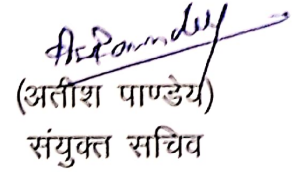 (अतीश पाण्डेय)
संयुक्त सचिव